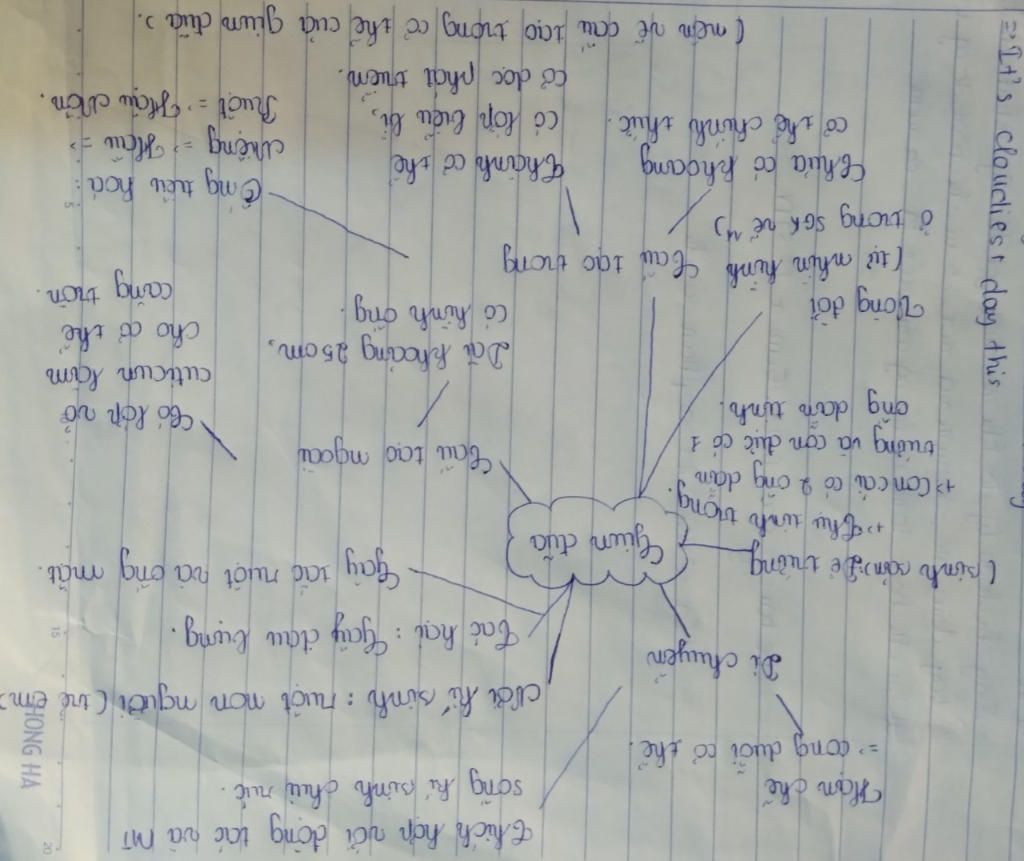 Thích hợp với động tác và MT
sống kí sinh chui rúc.
Hạn chế
=> cong duỗi cơ thể.
Di chuyển
Nơi kí sinh: ruột non người (trẻ em)
Tác hại: Gây đau bụng.
Gây tắc ruột và ống mật.
Giun đũa
(sinh sản) Đẻ trứng
+> Thụ tinh trong.
+> Con cái có 2 ống dẫn
trứng và con đực có 1
ống dẫn tinh.
Cấu tạo ngoài
Có lớp vỏ
cuticun làm
cho cơ thể
căng tròn.
Dài khoảng 25cm,
có hình ống.
Vòng đời
(tự nhìn hình
ở trong SGK vẽ
Cấu tạo trong
Chưa có khoang
cơ thể chính thức.
Thành cơ thể
có lớp biểu bì,
cơ dọc phát triển.
Ống tiêu hoá:
Miệng => Hầu =>
Ruột => Hậu môn.
(nên vẽ cấu tạo trong cơ thể của giun đũa).
=> It's cloudiest day this
HONG HA
15
20